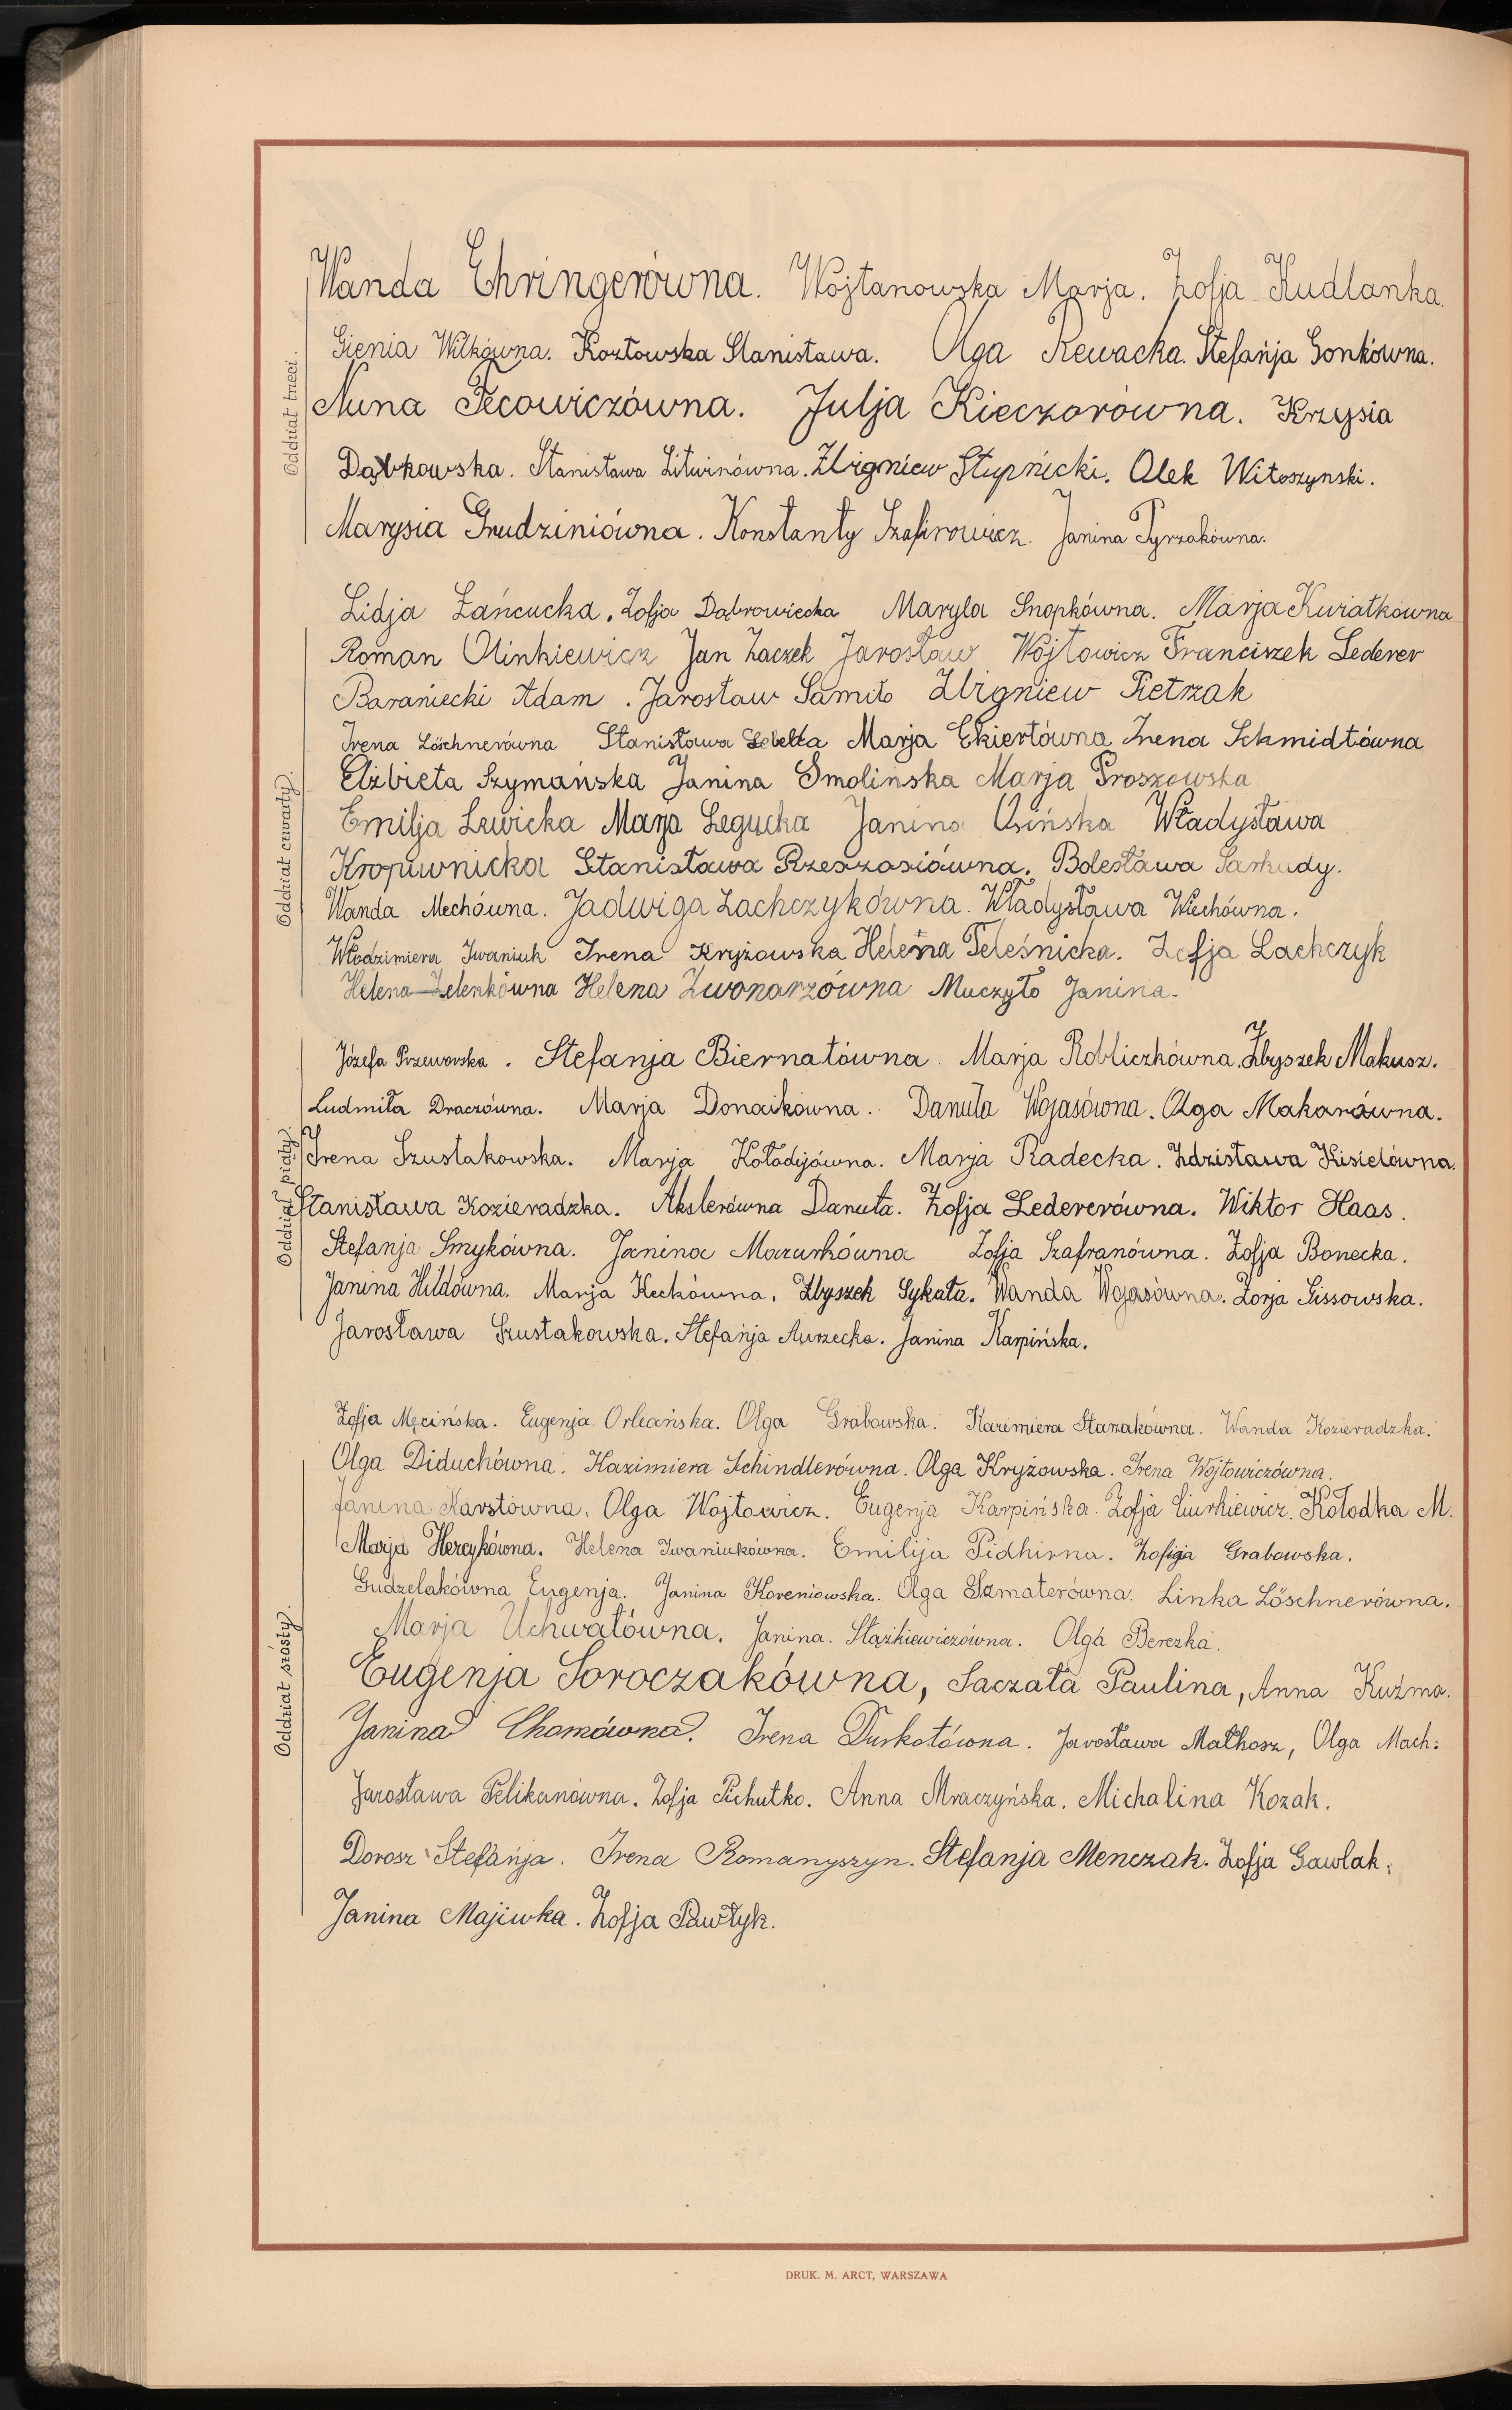 Oddział trzeci.
Wanda Ehringerówna. Wojtanowska Marja. Zofja Kudlanka.
Gienia Wilkówna. Kozłowska Stanisława. Olga Rewacka. Stefańja Gonkówna.
Nuna Tecowiczówna. Julja Kieczorówna. Krzysia
Dąbkowska. Stanisława Litwinówna. Zbigniew Stupnicki. Olek Witoszynski.
Marysia Grudziniówna. Konstanty Szafirowicz. Janina Pyrzakówna.
Oddział czwarty.
Lidja Łańcucka. Zofja Dąbrowiecka Maryla Snopkówna. Marja Kwiatkówna
Roman Olinkiewicz Jan Zaczek Jarosław Wójtowicz Franciszek Lederer
Baraniecki Adam. Jarosław Samiło Zbigniew Pietrzak
Irena Löschnerówna Stanisława Marja Ekiertówna Irena Schmidtówna
Elżbieta Szymańska Janina Smolińska Marja Proszowska
Emilja Lewicka Marja Legucka Janina Osińska Władysława
Kropiwnicka Stanisława Rzeszosiówna. Bolesława Sarkady.
Wanda Mechówna. Jadwiga Lachczykówna. Władysława Wiechówna.
Włodzimiera Iwaniuk Irena Kryżowska Helena Teleśnicka. Zofja Lachczyk
Helena Zelenkówna Helena Zwonarzówna Muczyło Janina.
Oddział piąty.
Józefa Przeworska. Stefanja Biernatówna. Marja Robliczkówna. Zbyszek Makusz.
Ludmiła Draczówna. Marja Donaikówna. Danuta Wojasówna. Olga Makarówna.
Irena Szustakowska. Marja Kołodijówna. Marja Radecka. Zdzisława Kisielówna.
Stanisława Kozieradzka. Akslerówna Danuta. Zofja Ledererówna. Wiktor Haas.
Stefanja Smykówna. Janina Mazurkówna Zofja Szafranówna. Zofja Bonecka.
Janina Hildówna. Marja Keckówna. Zbyszek Sykała. Wanda Wojasówna. Zorja Lissowska.
Jarosława Szustakowska. Stefańja Aurzecka. Janina Karpińska.
Oddział szósty.
Zofja Męcińska. Eugenja Orleańska. Olga Grabowska. Kazimiera Starzakówna. Wanda Kozieradzka.
Olga Diduchówna. Kazimiera Schindlerówna. Olga Kryżowska. Irena Wojtowiczówna.
Janina Karstówna. Olga Wojtowicz. Eugenja Karpińska. Zofja Ciurkiewicz. Kołodka M.
Marja Hercykówna. Helena Iwaniukówna. Emilija Pidhirna. Zofija Grabowska.
Gudzelakówna Eugenja. Janina Koreniowska. Olga Szmaterówna. Linka Löschnerówna.
Marja Uchwatówna. Janina. Stążkiewiczówna. Olga Berezka.
Eugenja Soroczakówna, Saczała Paulina, Anna Kuźma.
Janina Chomówna. Irena Durkotówna. Jarosława Małkosz, Olga Mach.
Jarosława Pelikanówna. Zofja Pichutko. Anna Mraczyńska. Michalina Kozak.
Dorosz Stefanja. Irena Romanyszyn. Stefanja Menczak. Zofja Gawlak.
Janina Majiwka. Zofja Pawłyk.
DRUK. M. ARCT, WARSZAWA